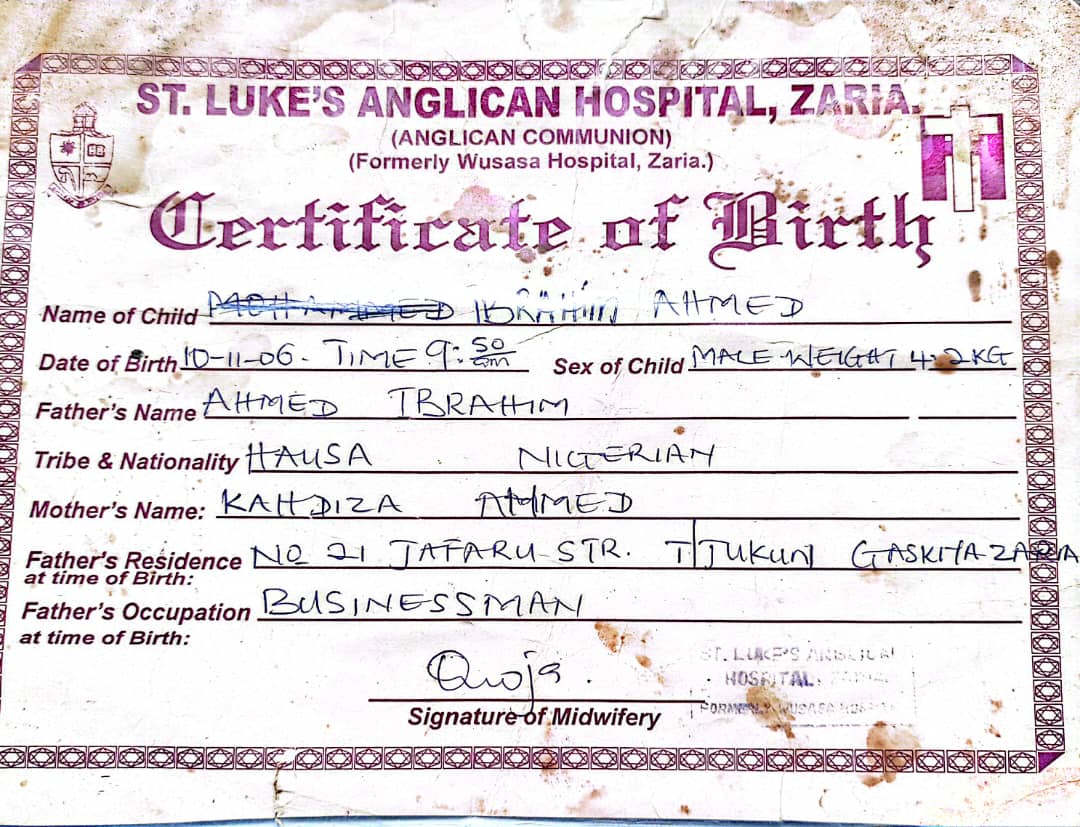 ST. LUKE'S ANGLICAN HOSPITAL, ZARIA.
(ANGLICAN COMMUNION)
(Formerly Wusasa Hospital, Zaria.)
Certificate of Birth
Name of Child MOHAMMED IBRAHIM AHMED
Date of Birth 10-11-06. TIME 9:50 am Sex of Child MALE WEIGHT 4.2KG
Father's Name AHMED IBRAHIM
Tribe & Nationality HAUSA NIGERIAN
Mother's Name: KAHDIZA AHMED
Father's Residence NO 21 JAFARU STR. T/JUKUN GASKIYA ZARIA
at time of Birth:
Father's Occupation BUSINESSMAN
at time of Birth:
Signature of Midwifery
ST. LUKE'S ANGLICAN
HOSPITAL, ZARIA
FORMERLY WUSASA